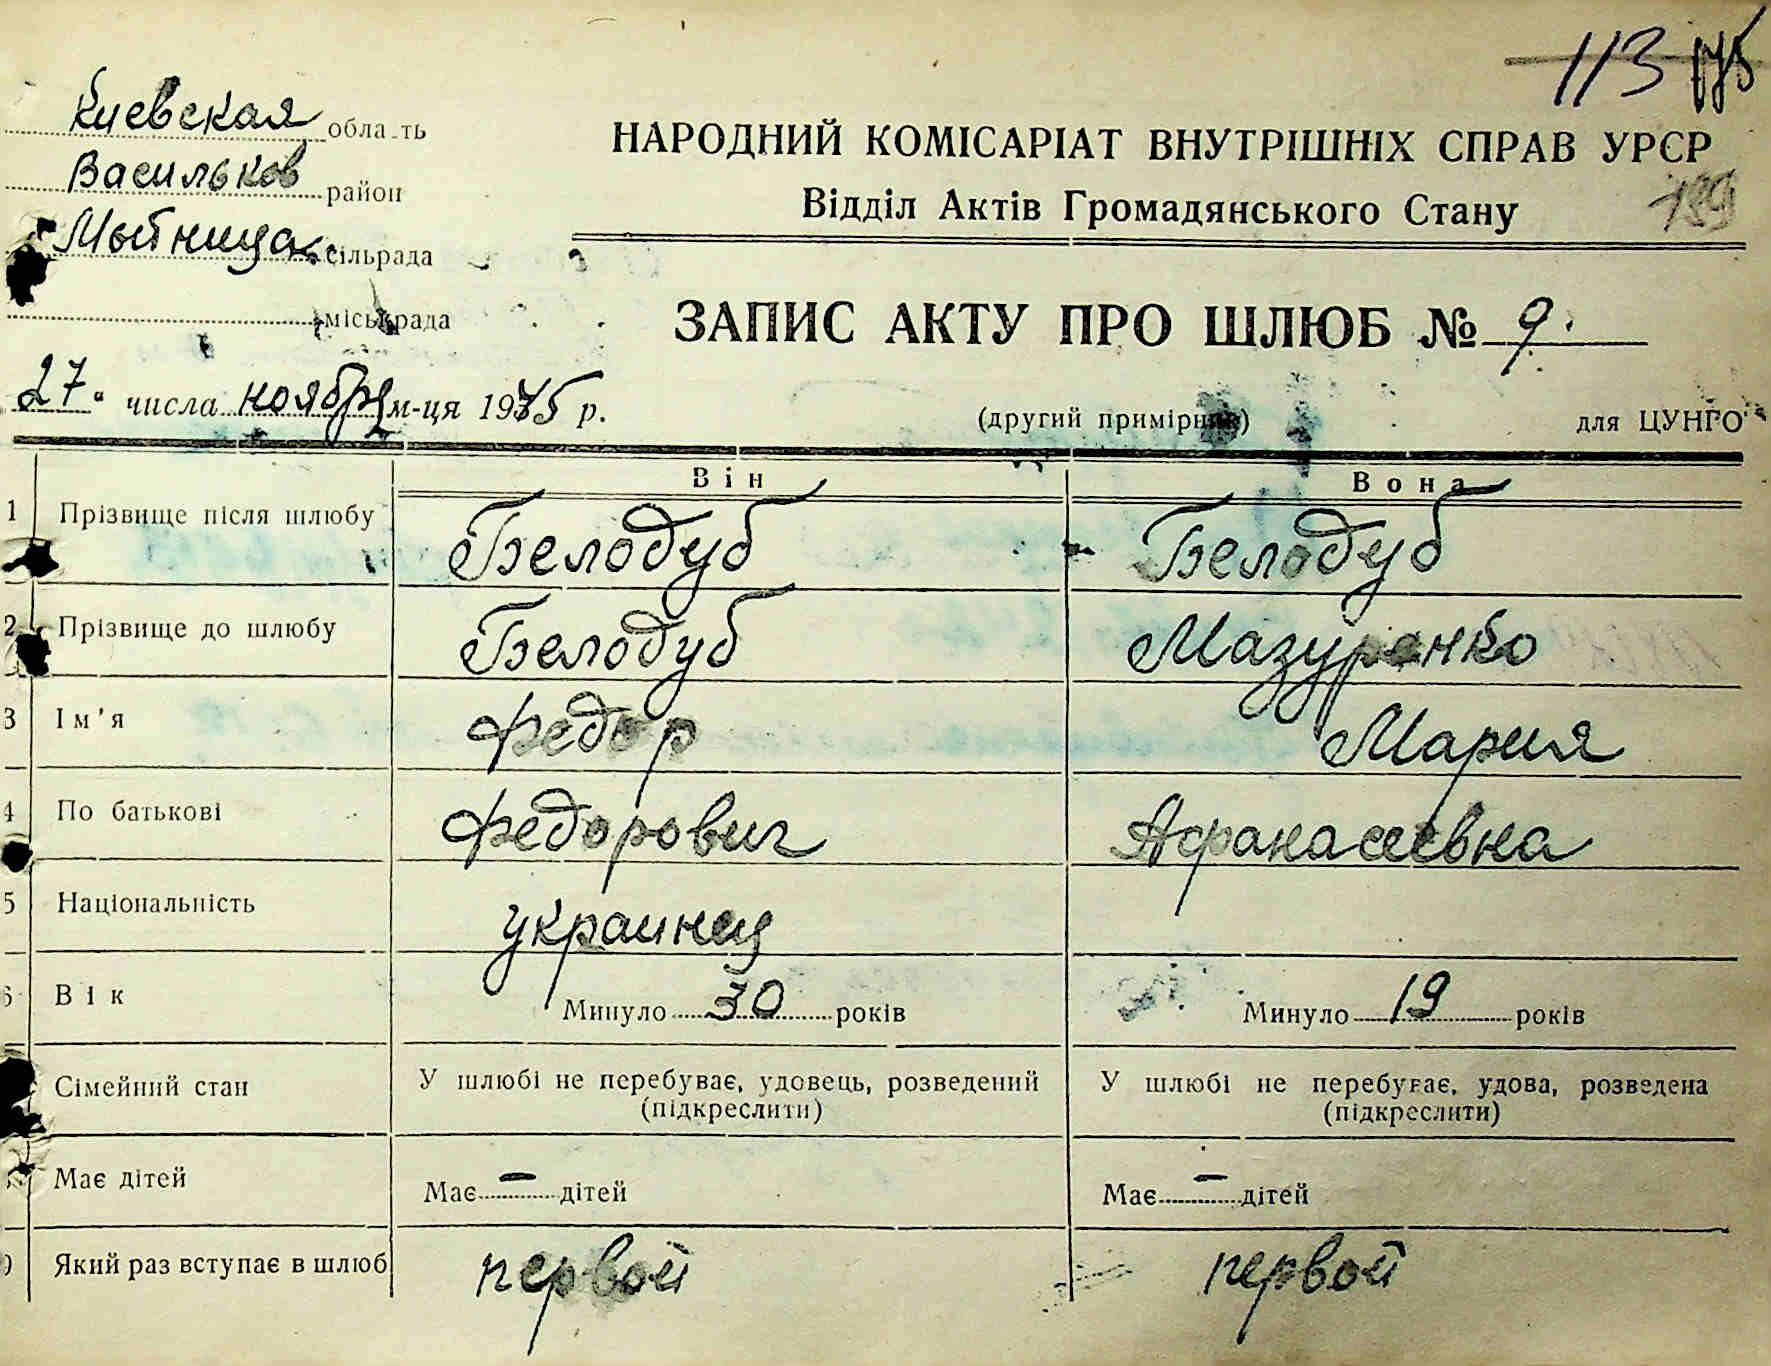 113
Киевская область
Васильков район
Мытница сільрада
міськрада
НАРОДНИЙ КОМІСАРІАТ ВНУТРІШНІХ СПРАВ УРСР
Відділ Актів Громадянського Стану
139
ЗАПИС АКТУ ПРО ШЛЮБ № 9.
27 " числа ноября м-ця 1945 р.
(другий примірник) для ЦУНГО
Він Вона
1 Прізвище після шлюбу Белодуб Белодуб
2 Прізвище до шлюбу Белодуб Мазуренко
3 Ім'я Федор Мария
4 По батькові Федорович Афанасиевна
5 Національність украинец
6 Вік Минуло 30 років Минуло 19 років
Сімейний стан У шлюбі не перебуває, удовець, розведений У шлюбі не перебуває, удова, розведена
(підкреслити) (підкреслити)
Має дітей Має — дітей Має — дітей
Який раз вступає в шлюб первой первой